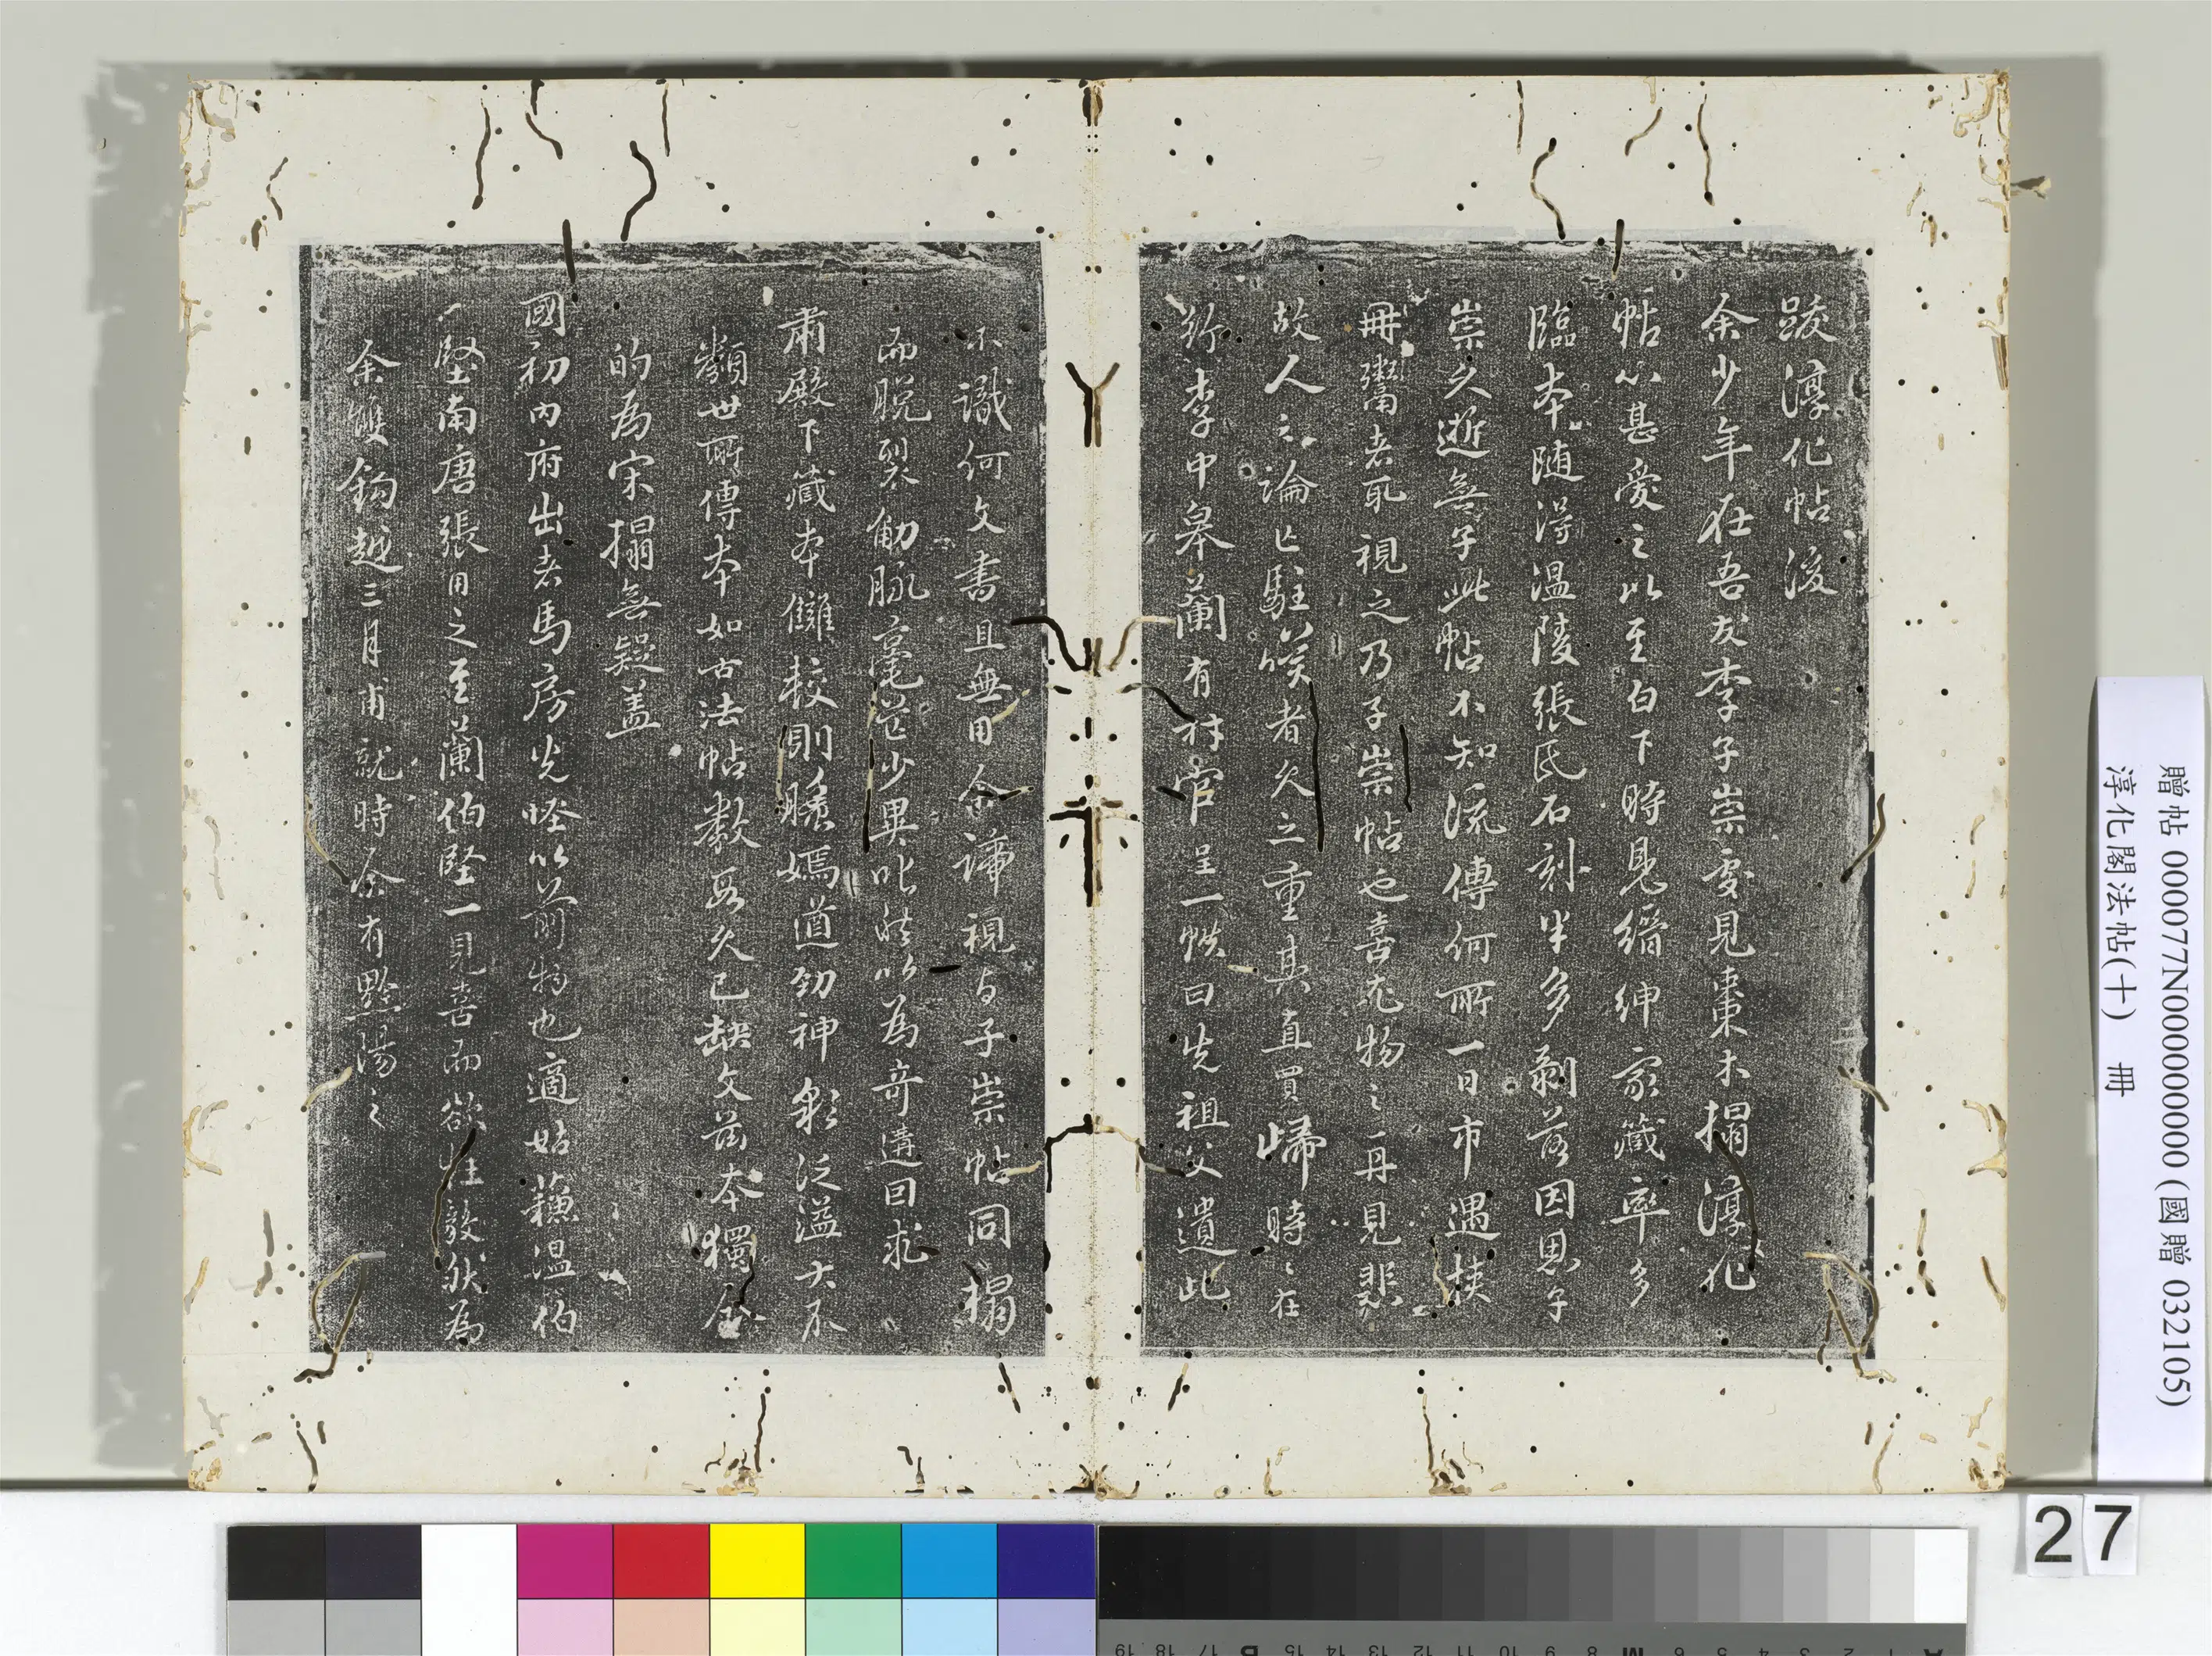 跋淳化帖後
余少年在吾友李子崇處見棗木搨淳化
帖心甚愛之以至白下時見縉紳家藏率多
臨本随得溫陵張氏石刻半多剝落因思子
崇久逝無子此帖不知流傳何所一日市遇挾
冊鬻者取視之乃子崇帖也喜充物之再見悲
故人之論亡駐笑者久之重其直買歸時時在
李中皋蘭有村官呈一帙曰先祖父遺此
不識何文書且無用余諦視与子崇帖同搨
而脫裂觔脉毫芒少異叱然以為奇遘回求
肅殿下藏本讎校則膄嫣遒勁神彩泛溢大不
類世所傳本如古法帖數段久已缺文茲本獨全
的為宋搨無疑蓋
國初內府出者馬房先怪以前物也適姑蘓溫伯
堅南唐張用之至蘭伯堅一見喜而欲狂毅然為
余雙鉤越三月甫就時余有黔陽之
贈帖 000077N000000000 (國贈 032105)
淳化閣法帖(十) 冊
27